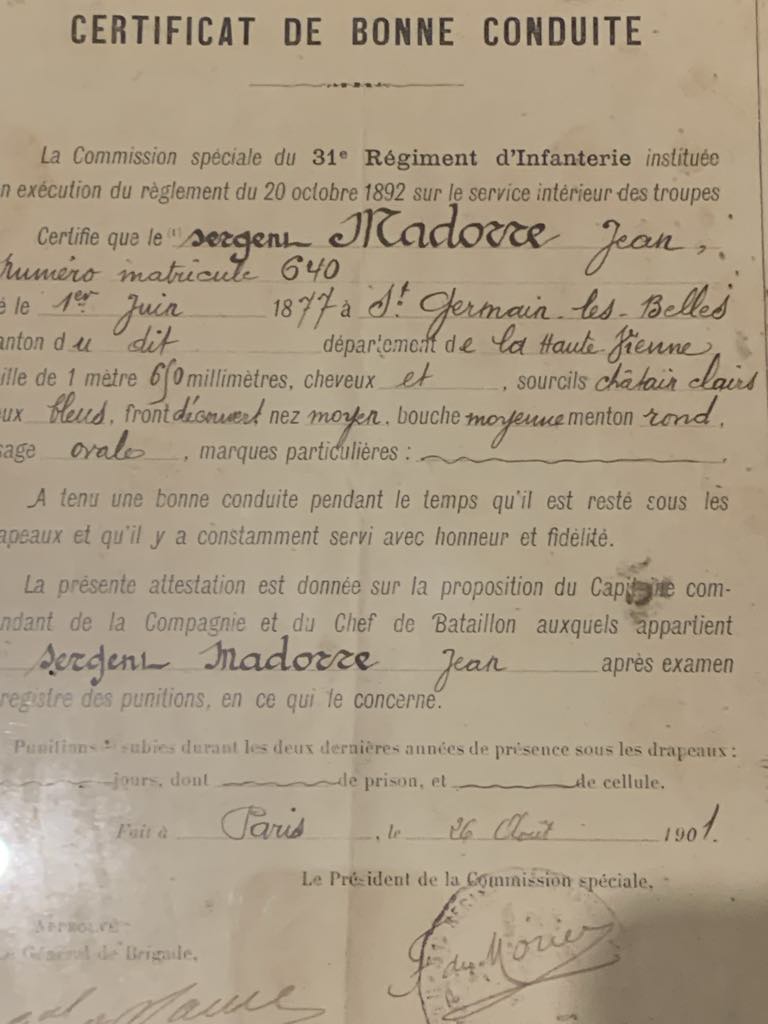 CERTIFICAT DE BONNE CONDUITE
La Commission spéciale du 31e Régiment d'Infanterie instituée
n exécution du règlement du 20 octobre 1892 sur le service intérieur des troupes
Certifie que le (1) Sergent Madorre Jean,
Numéro matricule 640
é le 1er Juin 1877 à St Germain-les-Belles
anton du dit département de la Haute Vienne
ille de 1 mètre 650 millimètres, cheveux et, sourcils châtain clairs
ux bleus, front découvert nez moyen, bouche moyenne menton rond,
sage ovale, marques particulières :
A tenu une bonne conduite pendant le temps qu'il est resté sous les
apeaux et qu'il y a constamment servi avec honneur et fidélité.
La présente attestation est donnée sur la proposition du Capitaine com-
ndant de la Compagnie et du Chef de Bataillon auxquels appartient
Sergent Madorre Jean après examen
registre des punitions, en ce qui le concerne.
Punitions subies durant les deux dernières années de présence sous les drapeaux :
jours, dont de prison, et de cellule.
Fait à Paris, le 26 Août 1901.
Le Président de la Commission spéciale,
APPROUVÉ
Général de Brigade,